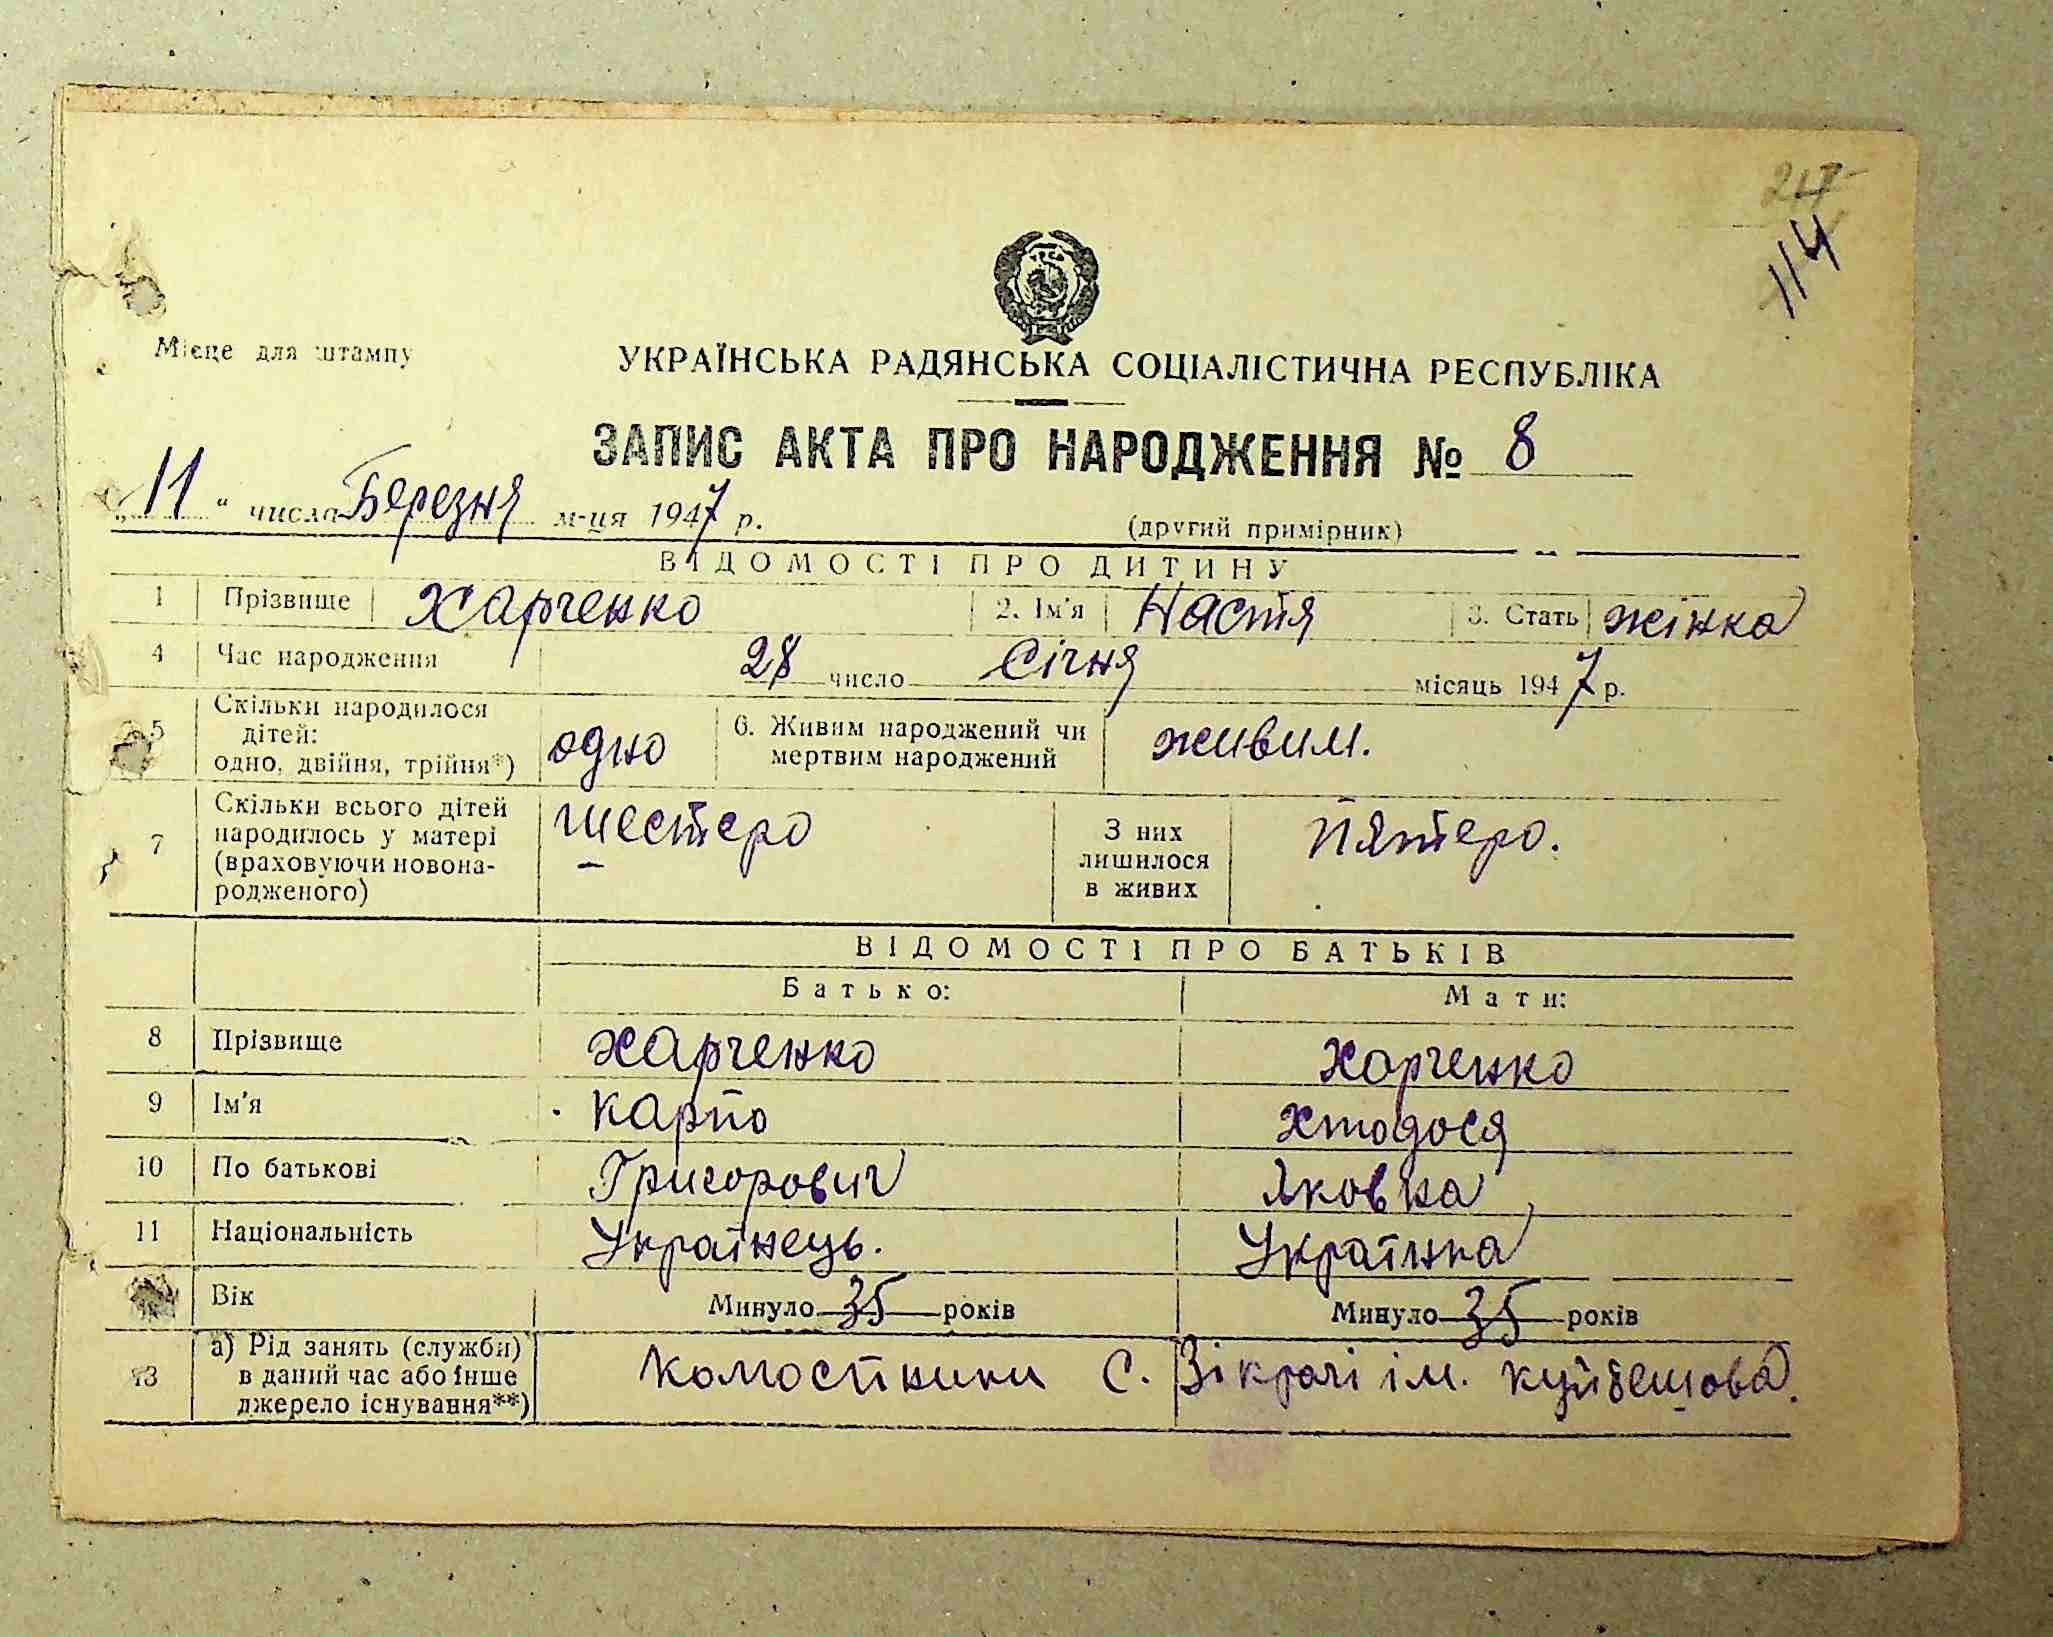 217
114
УРСР
Місце для штампу
УКРАЇНСЬКА РАДЯНСЬКА СОЦІАЛІСТИЧНА РЕСПУБЛІКА
ЗАПИС АКТА ПРО НАРОДЖЕННЯ № 8
„11“ числа Березня м-ця 1947 р. (другий примірник)
ВІДОМОСТІ ПРО ДИТИНУ
1 Прізвище Харченко 2. Ім'я Настя 3. Стать жінка
4 Час народження 28 число Січня місяць 1947 р.
5 Скільки народилося дітей: одно, двійня, трійня*) одно 6. Живим народжений чи мертвим народжений живим.
7 Скільки всього дітей народилось у матері (враховуючи новонародженого) шестеро З них лишилося в живих Пятеро.
ВІДОМОСТІ ПРО БАТЬКІВ
Батько: Мати:
8 Прізвище Харченко Харченко
9 Ім'я Карпо Хтодося
10 По батькові Григорович Яковна
11 Національність Українець. Українка
Вік Минуло 35 років Минуло 35 років
13 а) Рід занять (служби) в даний час або інше джерело існування**) С. Зікрачі ім. Куйбешова.